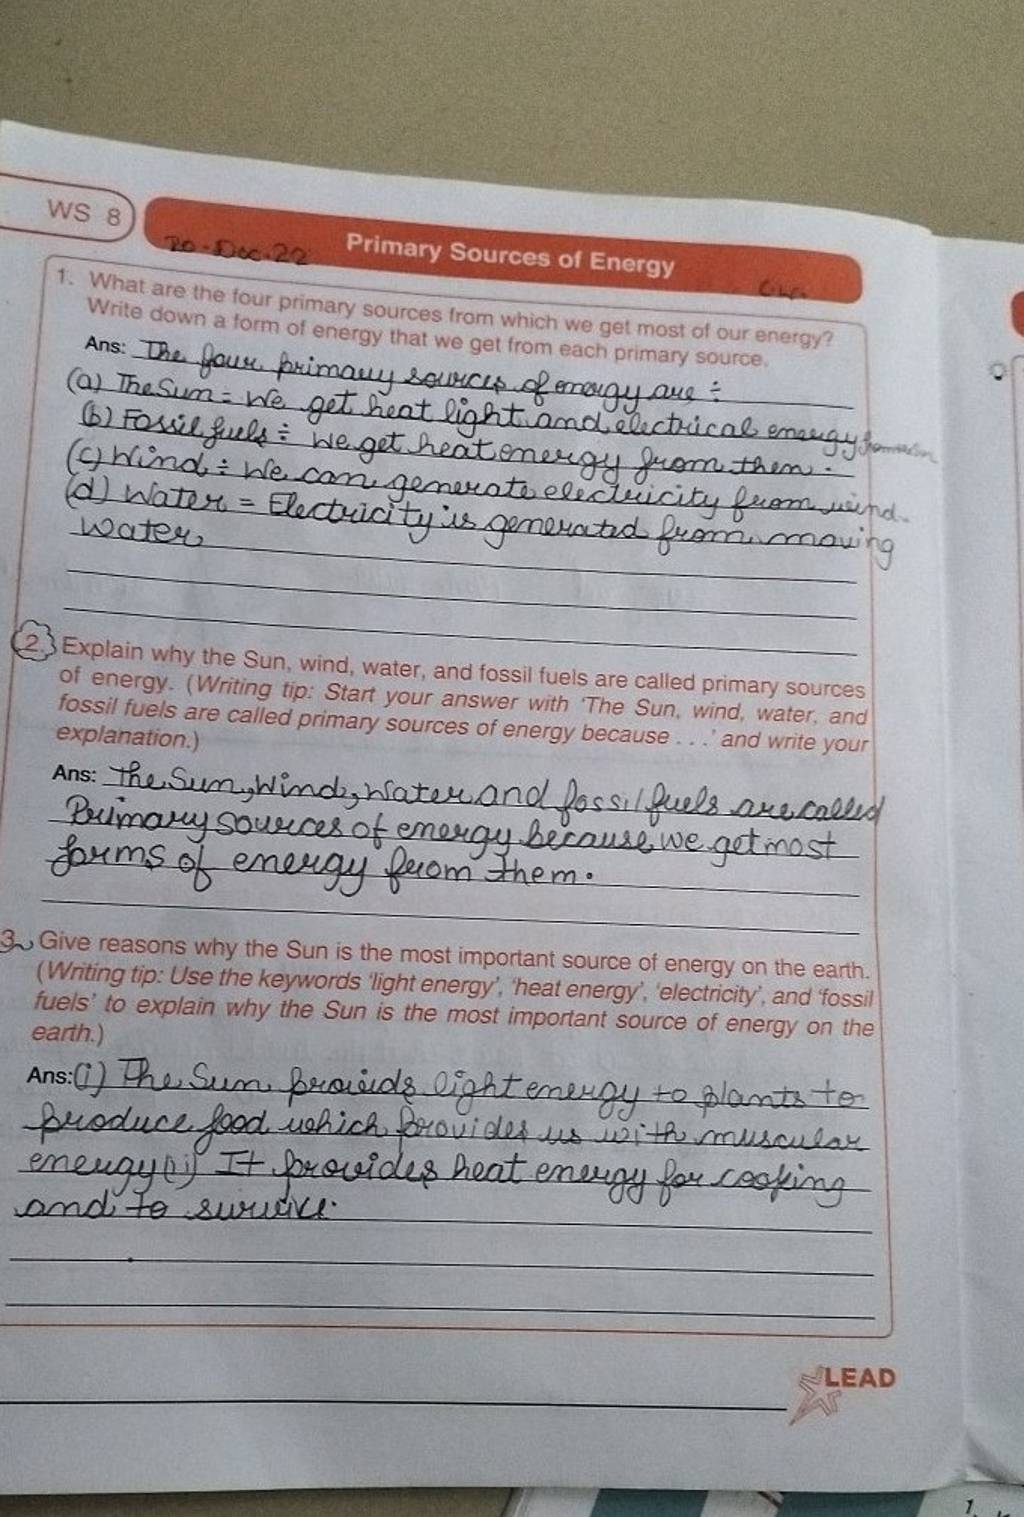 WS 8
20-Dec-22
Primary Sources of Energy
1. What are the four primary sources from which we get most of our energy?
Write down a form of energy that we get from each primary source.
Ans: The four primary sources of energy are ÷
(a) The Sun = We get heat light and electrical energy
(b) Fossil fuels ÷ we get heat energy from them.
(c) Wind ÷ We can generate electricity from wind.
(d) Water = Electricity is generated from moving
water.
2. Explain why the Sun, wind, water, and fossil fuels are called primary sources
of energy. (Writing tip: Start your answer with 'The Sun, wind, water, and
fossil fuels are called primary sources of energy because . . .' and write your
explanation.)
Ans: the Sun, Wind, Water and fossil fuels are called
Primary sources of energy because we get most
forms of energy from them.
3. Give reasons why the Sun is the most important source of energy on the earth.
(Writing tip: Use the keywords 'light energy', 'heat energy', 'electricity', and 'fossil
fuels' to explain why the Sun is the most important source of energy on the
earth.)
Ans: (i) The Sun provids light energy to plants to
produce food which provides us with muscular
energy (ii) It provides heat energy for cooking
and to survive.
LEAD
1.